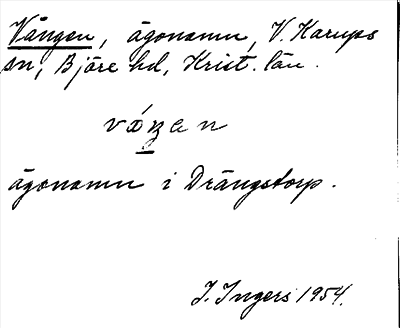 Vången, ägonamn, V. Karups
sn, Bjäre hd, Krist. län.
vǻŋen
ägonamn i Drängstorp.
I. Ingers 1954.